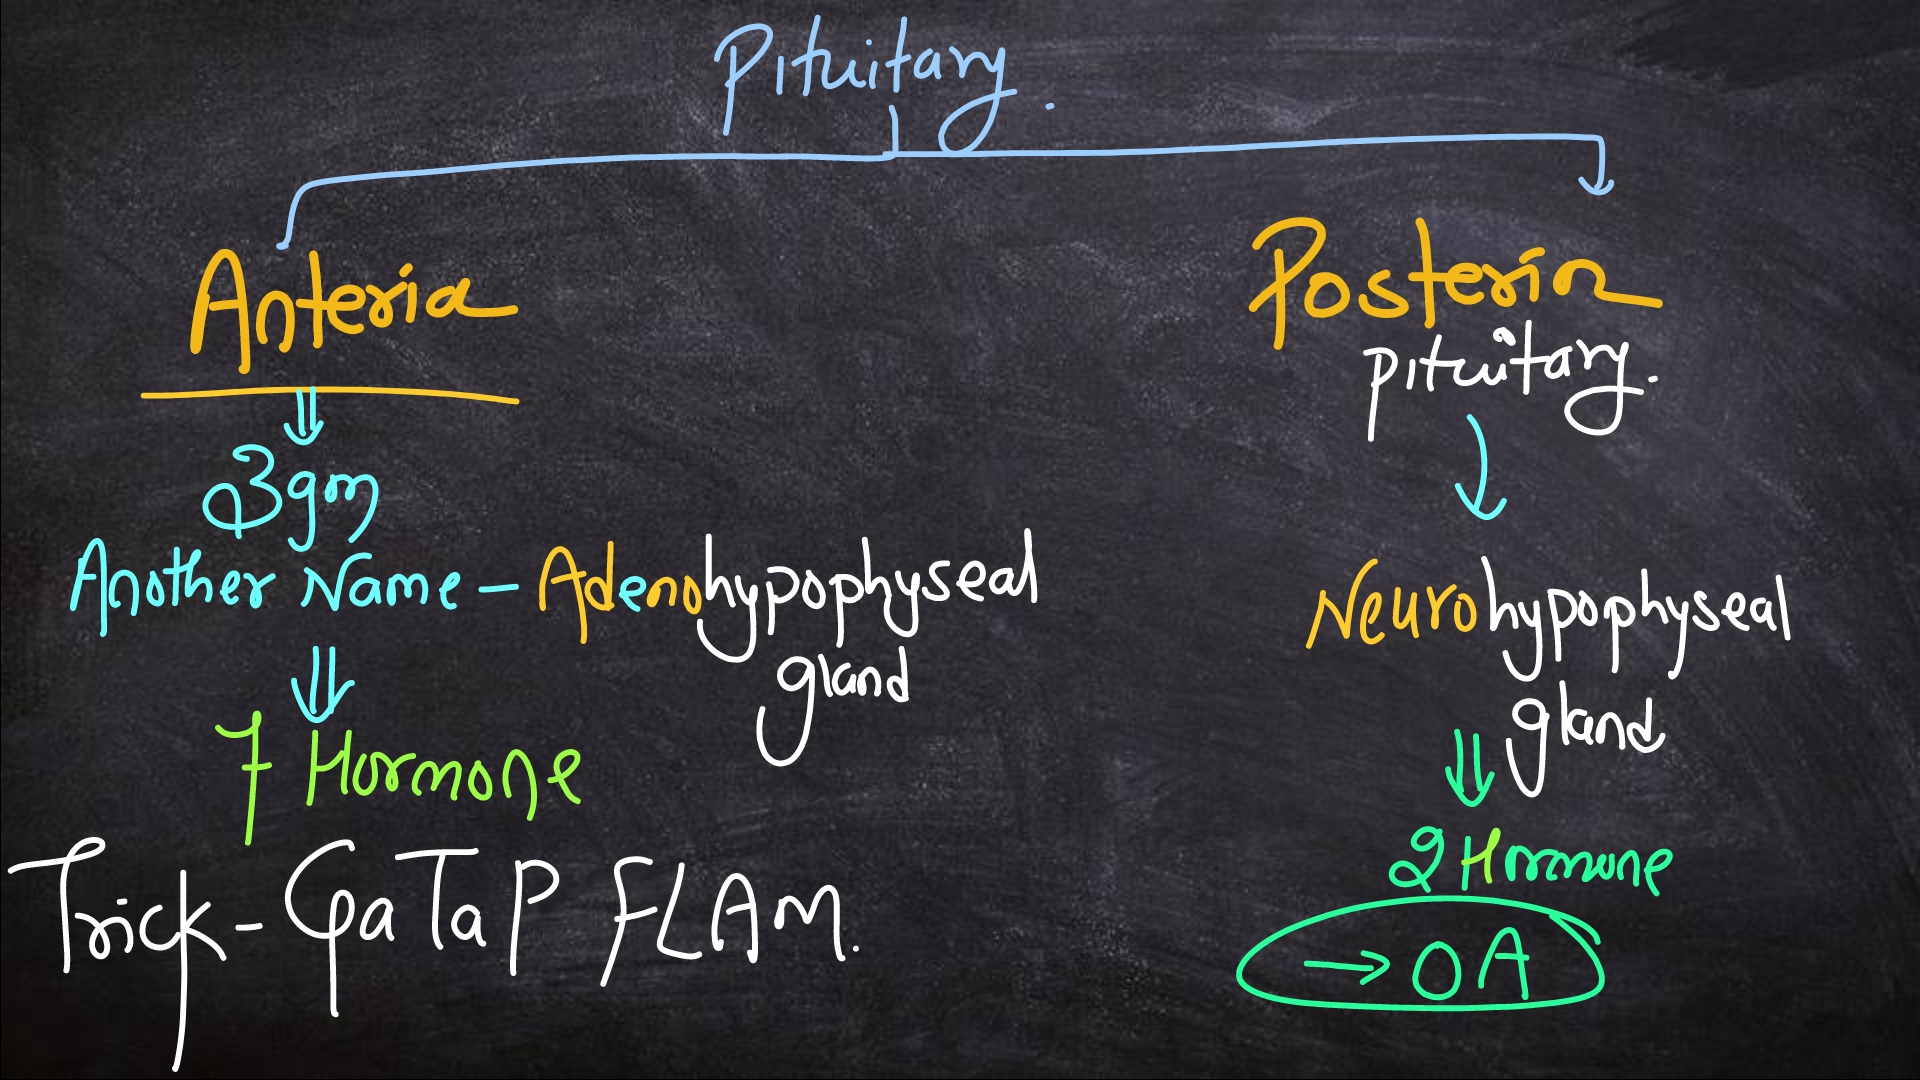 Pituitary.
Anterior
3gm
Another Name - Adenohypophyseal
gland
7 Hormone
Trick - GaTaP FLAM.
Posterior
pituitary.
Neurohypophyseal
gland
2 Hormone
→ OA